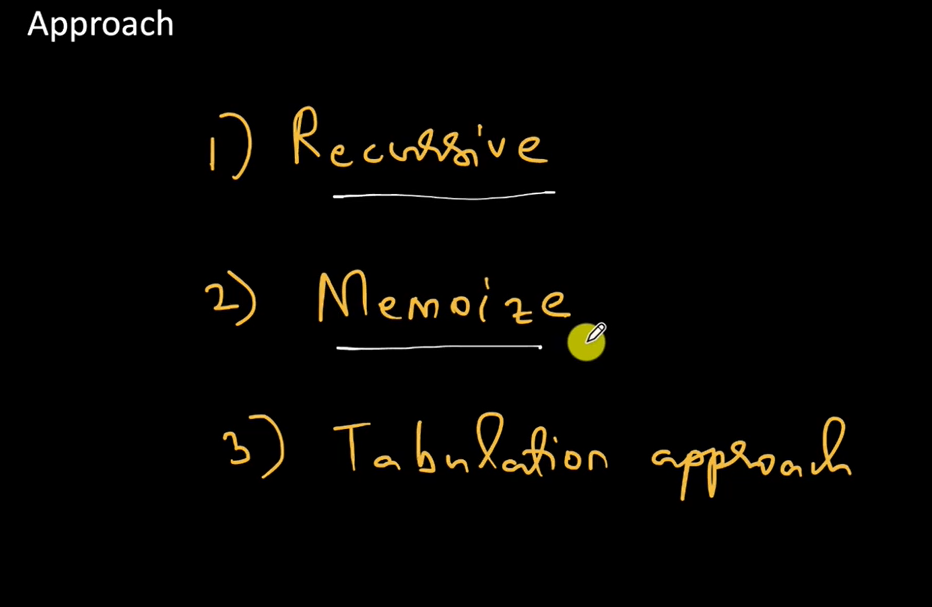 Approach
1) Recursive
2) Memoize
3) Tabulation approach